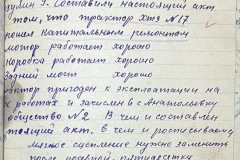 зулин Э. Составили настоящий акт
том, что трактор ХТЗ №17
пошел капитальным ремонтом
мотор работает хорошо
коробка работает хорошо
задний мост хорошо
актор пригоден к эксплоатации на
х работах и зачислен в с Анатольовку
общество №2. В чем и составлен
тоящий акт. в чем и росписываемся
мягкое сцепление нужно заменить
после посевной, пятидневку